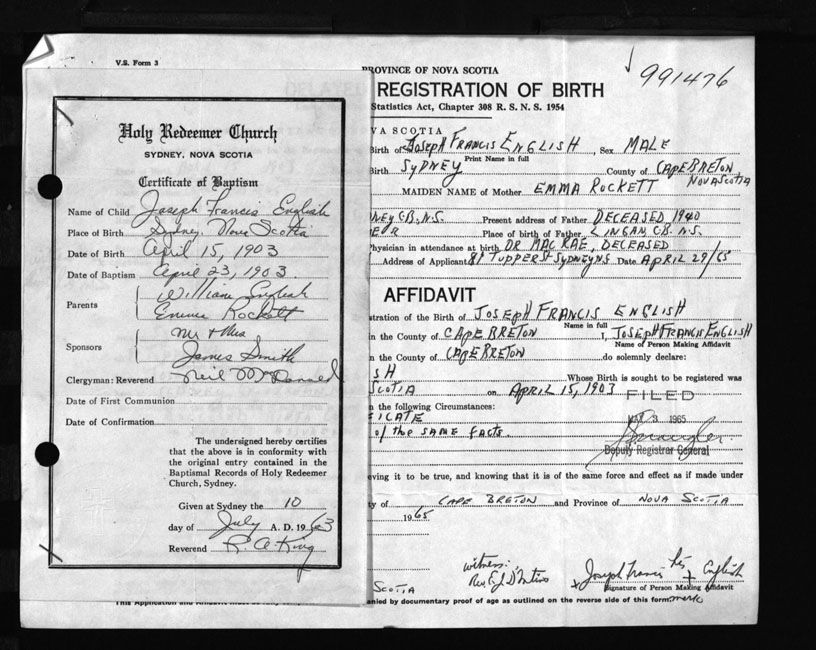 V.S. Form 3
Holy Redeemer Church
SYDNEY, NOVA SCOTIA
Certificate of Baptism
Name of Child Joseph Francis English
Place of Birth Sydney, Nova Scotia
Date of Birth April 15, 1903
Date of Baptism April 23, 1903
Parents William English
Emma Rockett
Sponsors Mr & Mrs
James Smith
Clergyman: Reverend Neil McDonald
Date of First Communion
Date of Confirmation
The undersigned hereby certifies
that the above is in conformity with
the original entry contained in the
Baptismal Records of Holy Redeemer
Church, Sydney.
Given at Sydney the 10
day of July A. D. 1963
Reverend R. A. King
PROVINCE OF NOVA SCOTIA
991476
REGISTRATION OF BIRTH
Statistics Act, Chapter 308 R. S. N. S. 1954
VA SCOTIA
Birth of JOSEPH FRANCIS ENGLISH, Sex MALE
Print Name in full
Birth SYDNEY County of CAPE BRETON,
NOVA SCOTIA
MAIDEN NAME of Mother EMMA ROCKETT
NEY C.B. N.S. Present address of Father DECEASED 1940
ER Place of birth of Father LINGAN C.B. N.S.
Physician in attendance at birth DR MAC RAE, DECEASED
Address of Applicant 81 TUPPER ST SYDNEY NS Date APRIL 29/65
AFFIDAVIT
stration of the Birth of JOSEPH FRANCIS ENGLISH
Name in full
in the County of CAPE BRETON I, JOSEPH FRANCIS ENGLISH
Name of Person Making Affidavit
n the County of CAPE BRETON do solemnly declare:
SH Whose Birth is sought to be registered was
SCOTIA on APRIL 15, 1903
FILED
n the following Circumstances:
ICATE
3 1965
of the SAME FACTS.
Deputy Registrar General
eving it to be true, and knowing that it is of the same force and effect as if made under
ty of CAPE BRETON and Province of NOVA SCOTIA
1965
witness:
Joseph Francis his X English
SCOTIA
Signature of Person Making Affidavit
This Application and Affidavit must be
anied by documentary proof of age as outlined on the reverse side of this form. mark